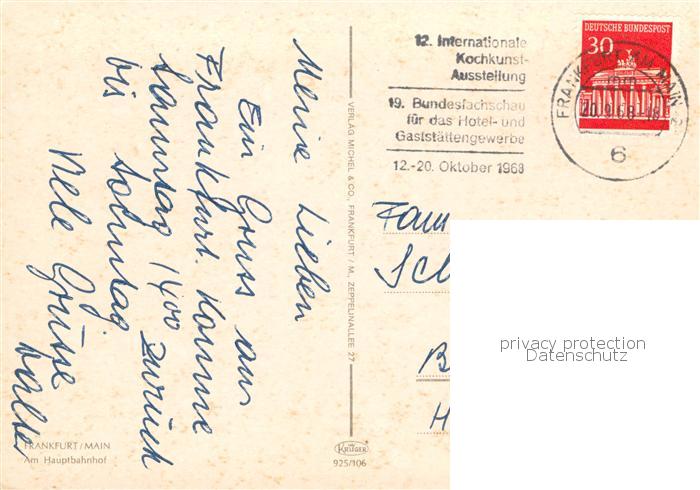 Meine Lieben
Ein Gruss aus
Frankfurt. Komme
Sonntag 1400 zurück
bis Sonntag
Viele Grüsse
Walter
FRANKFURT/MAIN
Am Hauptbahnhof
VERLAG MICHEL & CO., FRANKFURT / M. ZEPPELINALLEE 27
KRÜGER
925/106
12. Internationale
Kochkunst-
Ausstellung
19. Bundesfachschau
für das Hotel- und
Gaststättengewerbe
12.-20. Oktober 1968
DEUTSCHE BUNDESPOST
30
FRANKFURT AM MAIN 2
6
Fam
Sch
B
H
privacy protection
Datenschutz